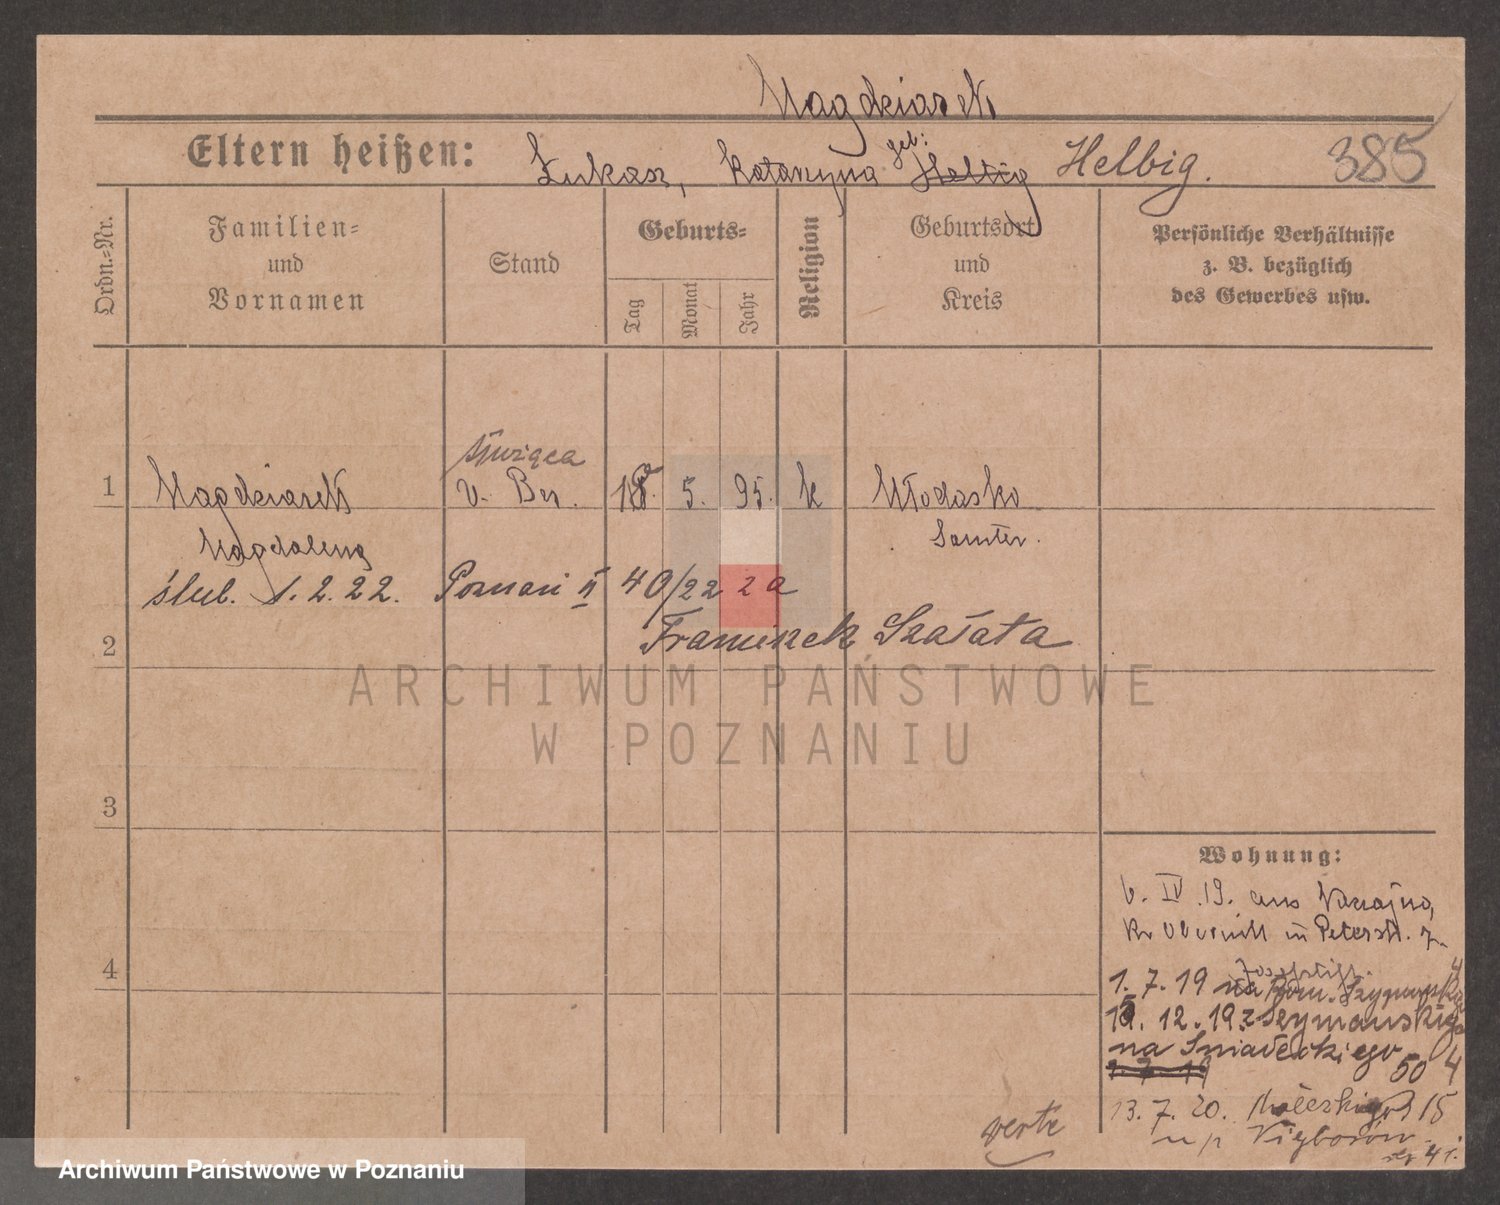 Magdziarek
Eltern heißen: Łukasz, Katarzyna geb: Helbig Helbig. 385
Ordn.-Nr.
Familien-
und
Vornamen
Stand
Geburts-
Tag
Monat
Jahr
Religion
Geburtsort
und
Kreis
Persönliche Verhältnisse
z. B. bezüglich
des Gewerbes usw.
służąca
1 Magdziarek v. Ber. 18. 5. 95. k Młodasko
Magdalena Samter.
ślub. 1. 2. 22. Poznań II 40/22 2a
2 Franciszek Szałata
ARCHIWUM PAŃSTWOWE
W POZNANIU
3
4
Wohnung:
v. IV .19. aus
Kr Obornik in Peterstr. 7.
1. 7. 19 na
15. 12. 19 z Szymańskiego
na Śniadeckiego 50 4
13. 7. 20. 15
u p
verte
Archiwum Państwowe w Poznaniu